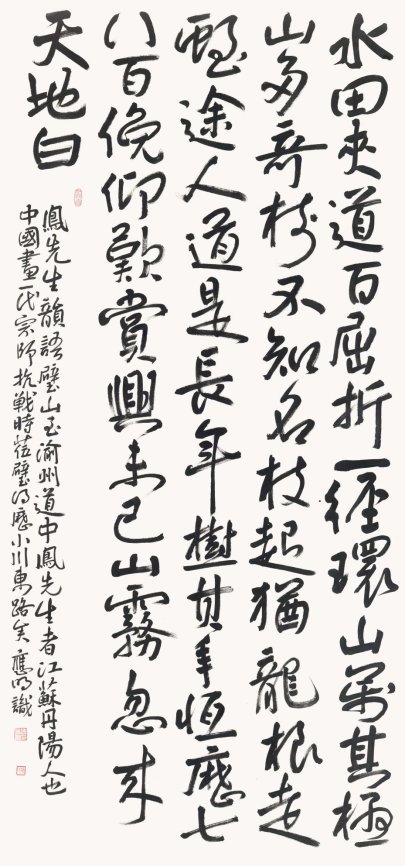 水田夾道百屈折一徑環山萬其極
山多奇樹不知名枝起猶龍根走
途人道是長年樹其年恆歷七
八百俛仰歎賞興未已山霧忽來
天地白
鳳先生韻語璧山至渝州道中鳳先生者江蘇丹陽人也
中國畫一代宗師抗戰時莅璧得歷小川東路矣 應明識